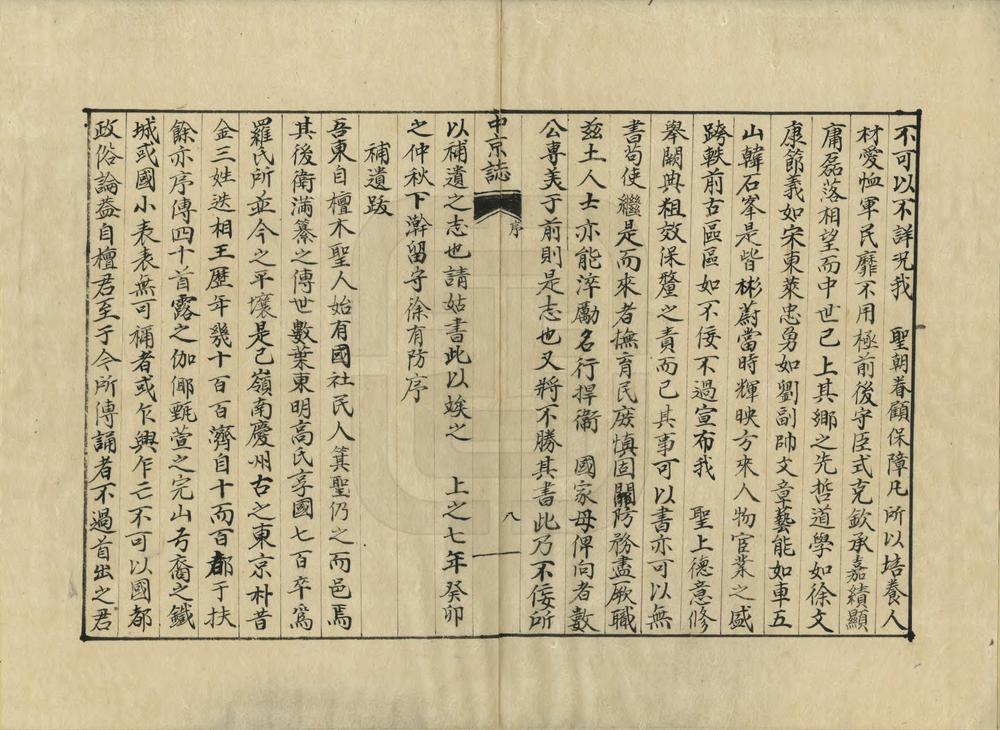 不可以不詳況我　聖朝眷顧保障凡所以培養人
材愛恤軍民靡不用極前後守臣式克欽承嘉績顯
庸磊落相望而中世已上其鄉之先哲道學如徐文
康節義如宋東萊忠勇如劉副帥文章藝能如車五
山韓石峯是皆彬蔚當時輝映方來人物宦業之盛
跨軼前古區區如不佞不過宣布我　聖上德意修
舉闕典粗效保釐之責而已其事可以書亦可以無
書苟使繼是而來者撫育民庶慎固關防務盡厥職
茲土人士亦能淬勵名行捍衛　國家毋俾向者數
公專美于前則是志也又將不勝其書此乃不佞所
中京誌
序
八
以補遺之志也請姑書此以竢之　上之七年癸卯
之仲秋下澣留守徐有防序
補遺跋
吾東自檀木聖人始有國社民人箕聖仍之而邑焉
其後衛滿纂之傳世數葉東明高氏享國七百卒為
羅氏所並今之平壤是已嶺南慶州古之東京朴昔
金三姓迭相王歷年幾十百百濟自十而百都于扶
餘亦序傳四十首露之伽倻甄萱之完山弓裔之鐵
城或國小表表無可稱者或乍興乍亡不可以國都
政俗論蓋自檀君至于今所傳誦者不過首出之君